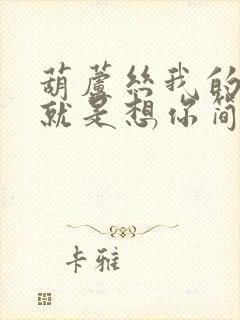 葫蘆絲我的
就是想你簡
卡雅